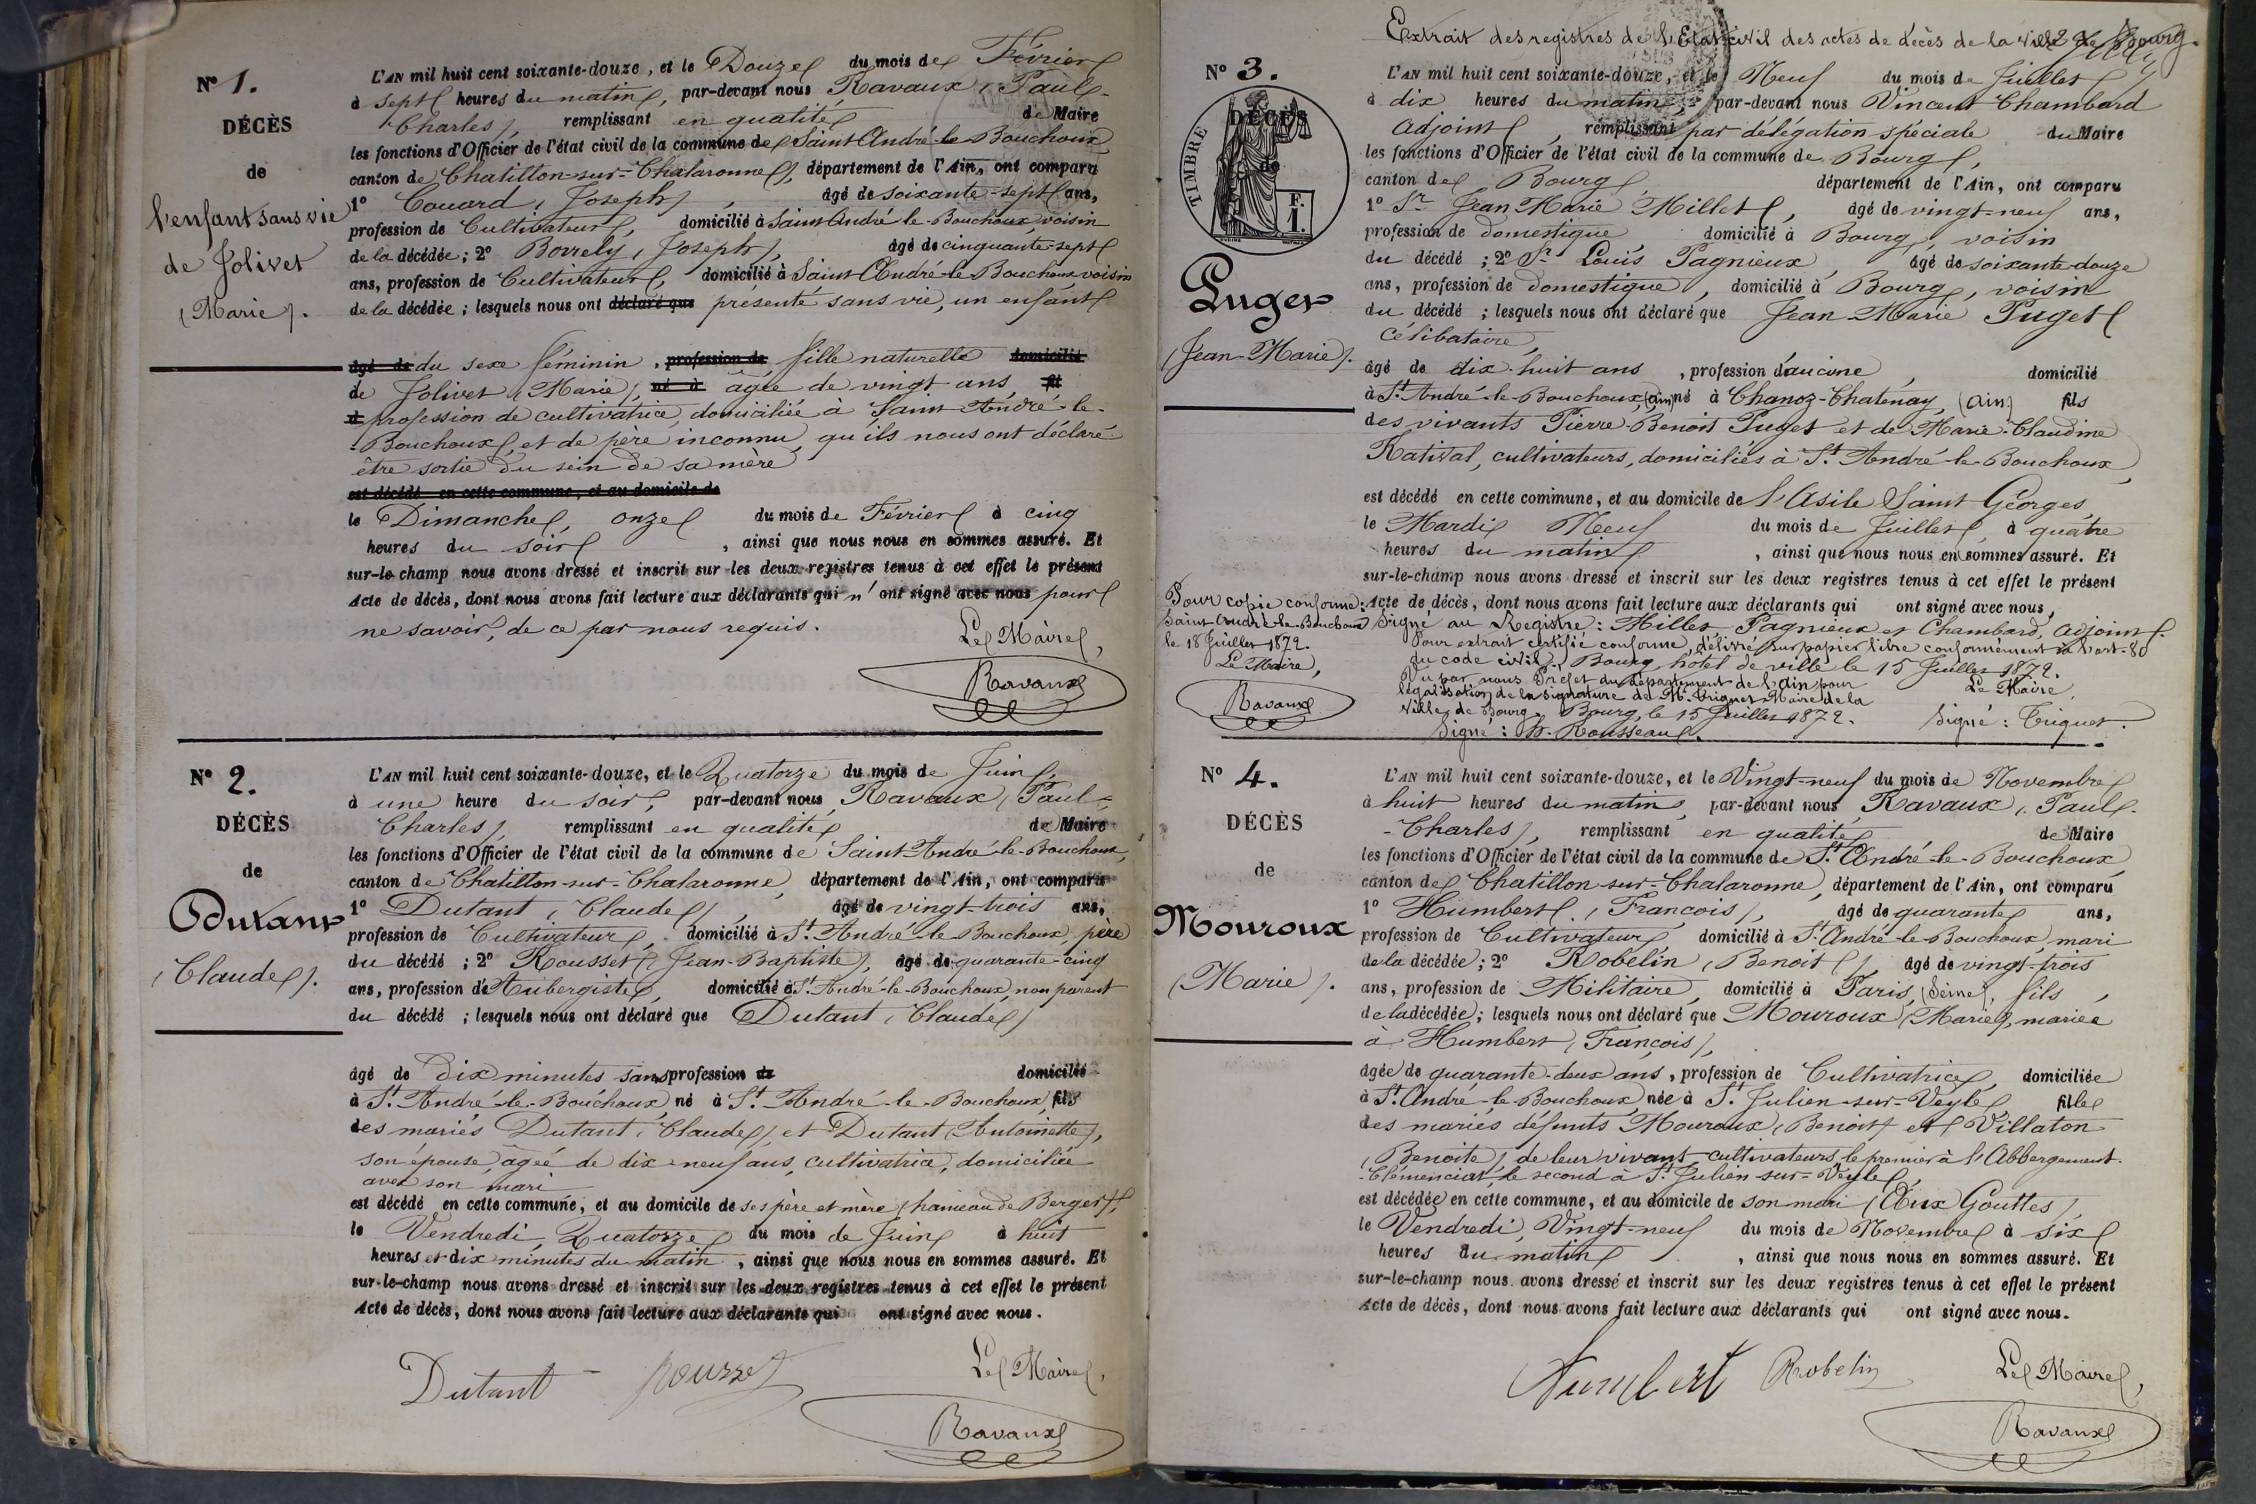 N° 1.
DÉCÈS
de
l'enfant sans vie
de Jolivet
(Marie).
L'AN mil huit cent soixante-douze, et le Douze du mois de Février
à sept heures du matin, par-devant nous Ravaux (Paul-
Charles), remplissant en qualité de Maire
les fonctions d'Officier de l'état civil de la commune de Saint André-le-Bouchoux
canton de Chatillon-sur-Chalaronne, département de l'Ain, ont comparu
1° Couard (Joseph), âgé de soixante-sept ans,
profession de Cultivateur, domicilié à Saint André-le-Bouchoux, voisin
de la décédée; 2° Borrely (Joseph), âgé de cinquante-sept
ans, profession de Cultivateur, domicilié à Saint André-le-Bouchoux voisin
de la décédée; lesquels nous ont déclaré que présenté sans vie, un enfant
âgé de du sexe féminin, profession de fille naturelle domicilié
de Jolivet (Marie), né à âgée de vingt ans, fil
d profession de cultivatrice, domiciliée à Saint André-le-
-Bouchoux, et de père inconnu, qu'ils nous ont déclaré
être sortie du sein de sa mère
est décédé en cette commune, et au domicile de
le Dimanche, onze du mois de Février à cinq
heures du soir, ainsi que nous nous en sommes assuré. Et
sur-le-champ nous avons dressé et inscrit sur les deux registres tenus à cet effet le présent
Acte de décès, dont nous avons fait lecture aux déclarants qui n'ont signé avec nous pour
ne savoir, de ce par nous requis.
Le Maire,
Ravaux
N° 2.
DÉCÈS
de
Dutant
(Claude).
L'AN mil huit cent soixante-douze, et le Quatorze du mois de Juin,
à une heure du soir, par-devant nous Ravaux (Paul-
Charles), remplissant en qualité de Maire
les fonctions d'Officier de l'état civil de la commune de Saint André-le-Bouchoux,
canton de Chatillon-sur-Chalaronne, département de l'Ain, ont comparu
1° Dutant (Claude), âgé de vingt-trois ans,
profession de Cultivateur, domicilié à St. André-le-Bouchoux, père
du décédé; 2° Rousset (Jean-Baptiste), âgé de quarante-cinq
ans, profession d'Aubergiste, domicilié à St. André-le-Bouchoux, non parent
du décédé; lesquels nous ont déclaré que Dutant (Claude)
âgé de Dix minutes sans profession de domicilié
à St. André-le-Bouchoux né à St. André-le-Bouchoux, fils
des mariés Dutant (Claude), et Dutant (Antoinette),
son épouse, âgée de dix-neuf ans, cultivatrice, domiciliée
avec son mari
est décédé en cette commune, et au domicile de ses père et mère (hameau de Berger),
le Vendredi, Quatorze du mois de Juin à huit
heures et dix minutes du matin, ainsi que nous nous en sommes assuré. Et
sur-le-champ nous avons dressé et inscrit sur les deux registres tenus à cet effet le présent
Acte de décès, dont nous avons fait lecture aux déclarants qui ont signé avec nous.
Dutant Rousset Le Maire,
Ravaux
Extrait des registres de l'Etat civil des actes de décès de la ville de Bourg.
N° 3.
DÉCÈS
de
TIMBRE
F.
1.
Puget
(Jean-Marie).
L'AN mil huit cent soixante-douze, et le Neuf du mois de Juillet
à dix heures du matin, par-devant nous Vincent Chambard
adjoint, remplissant par délégation spéciale du Maire
les fonctions d'Officier de l'état civil de la commune de Bourg,
canton de Bourg département de l'Ain, ont comparu
1° Sr. Jean Marie Millet, âgé de vingt-neuf ans,
profession de domestique domicilié à Bourg, voisin
du décédé; 2° Sr. Louis Pagnieux, âgé de soixante-douze
ans, profession de domestique, domicilié à Bourg, voisin
du décédé; lesquels nous ont déclaré que Jean-Marie Puget
célibataire,
âgé de dix-huit ans, profession d'aucune, domicilié
à St. André-le-Bouchoux, (ain) né à Chanoz-Chatenay, (ain) fils
des vivants Pierre-Benoit Puget et de Marie-Claudine
Rativat, cultivateurs, domiciliés à St. André-le-Bouchoux,
est décédé en cette commune, et au domicile de l'Asile Saint Georges,
le Mardi Neuf du mois de Juillet, à quatre
heures du matin, ainsi que nous nous en sommes assuré. Et
sur-le-champ nous avons dressé et inscrit sur les deux registres tenus à cet effet le présent
Acte de décès, dont nous avons fait lecture aux déclarants qui ont signé avec nous,
Signé au Registre: Millet, Pagnieux et Chambard, adjoint.
Pour extrait certifié conforme, délivré sur papier libre conformément à l'art. 80
du code civil. Bourg, hôtel de ville le 15 Juillet 1872.
Le Maire,
Signé: Triquet.
Vu par nous Préfet du département de l'Ain pour
légalisation de la signature de Mr. Triquet Maire de la
ville de Bourg. Bourg, le 15 Juillet 1872.
Signé: Rousseau.
Pour copie conforme:
Saint André-le-Bouchoux
le 18 Juillet 1872.
Le Maire,
Ravaux
N° 4.
DÉCÈS
de
Mouroux
(Marie).
L'AN mil huit cent soixante-douze, et le Vingt-neuf du mois de Novembre
à huit heures du matin, par-devant nous Ravaux (Paul-
-Charles), remplissant en qualité de Maire
les fonctions d'Officier de l'état civil de la commune de St. André-le-Bouchoux
canton de Chatillon-sur-Chalaronne, département de l'Ain, ont comparu
1° Humbert (François), âgé de quarante ans,
profession de Cultivateur, domicilié à St. André-le-Bouchoux, mari
de la décédée; 2° Robelin (Benoit), âgé de vingt-trois
ans, profession de Militaire, domicilié à Paris, (Seine), fils,
de la décédée; lesquels nous ont déclaré que Mouroux (Marie), mariée
à Humbert (François),
âgée de quarante-deux ans, profession de Cultivatrice, domiciliée
à St. André-le-Bouchoux, née à St. Julien-sur-Veyle fille
des mariés défunts Mouroux (Benoit) et Villaton
(Benoite), de leur vivant cultivateurs, le premier à l'Abbergement-
-Clémenciat, le second à St. Julien-sur-Veyle,
est décédée en cette commune, et au domicile de son mari (Aux Gouttes)
le Vendredi, Vingt-neuf du mois de Novembre à six
heures du matin, ainsi que nous nous en sommes assuré. Et
sur-le-champ nous avons dressé et inscrit sur les deux registres tenus à cet effet le présent
Acte de décès, dont nous avons fait lecture aux déclarants qui ont signé avec nous.
Humbert Robelin Le Maire,
Ravaux